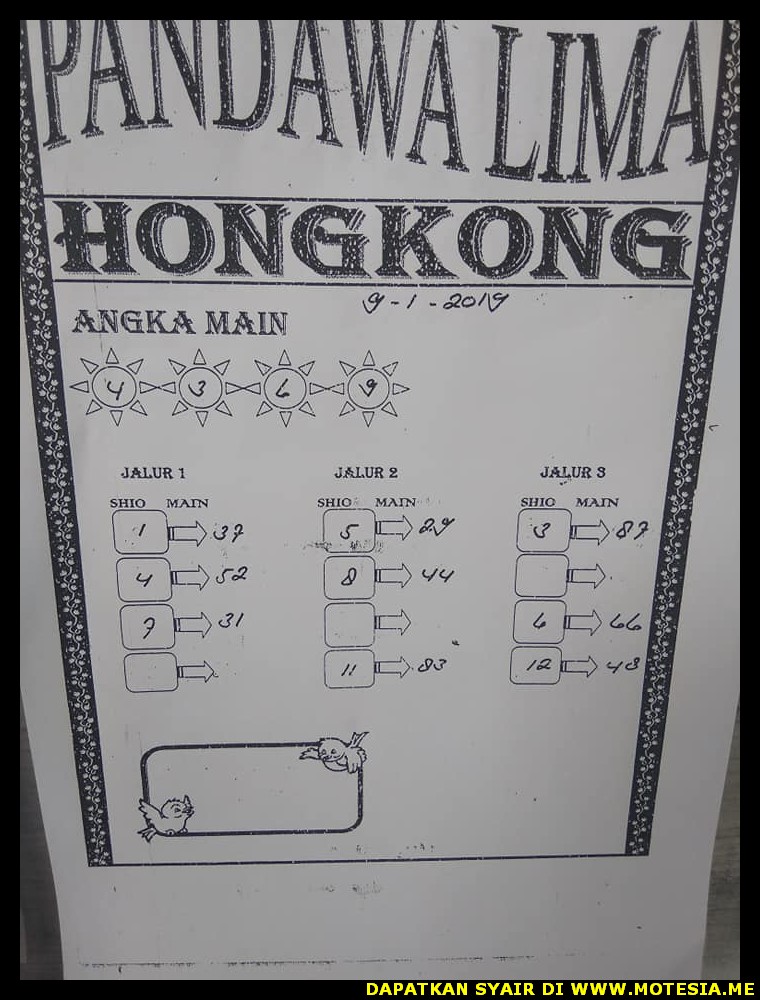 PANDAWA LIMA
HONGKONG
9-1-2019
ANGKA MAIN
4 3 6 9
JALUR 1 JALUR 2 JALUR 3
SHIO MAIN SHIO MAIN SHIO MAIN
1 37 5 29 3 87
4 52 8 44
7 31 6 66
11 83 12 48
DAPATKAN SYAIR DI WWW.MOTESIA.ME